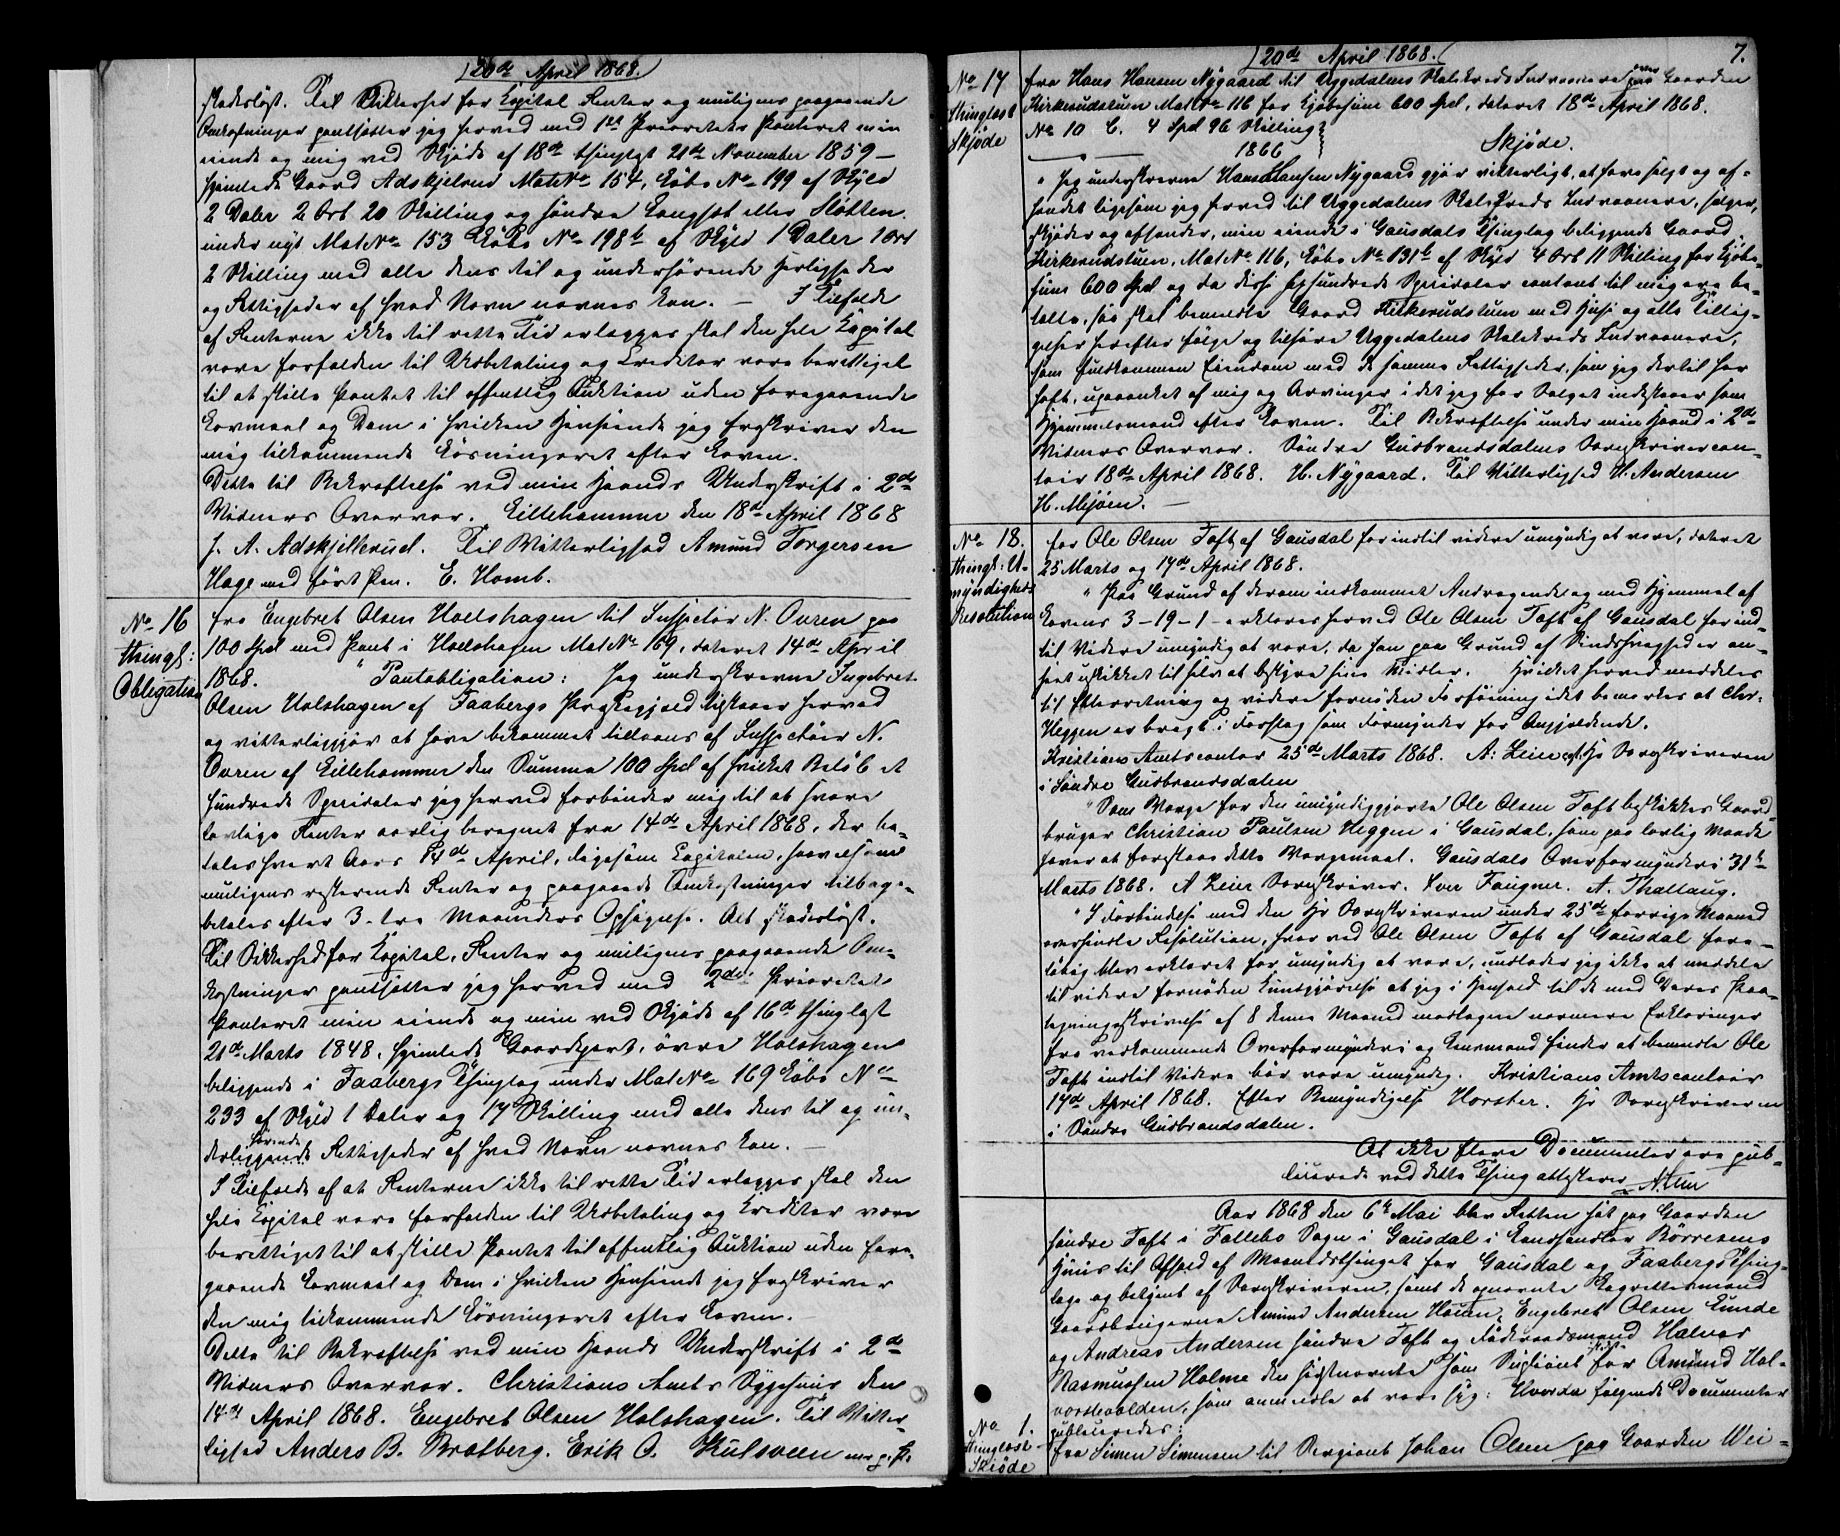 (20de April 1868.)
skadesløst. Til Sikkerhed for Kapital Renter og muligens paagaaende
Omkostninger pantsætter jeg herved med 1st Prioritets Panteret min
eiende og mig ved Skjøde af 18de thinglyst 21de November 1859 –
hjemlede Gaard Adskjelrud Mat No 154, Løbe No 199 af Skyld
2 Daler 2 Ort 20 Skilling og søndre Langset eller Sletten
under nyt Mat No 153 Løbe No 198b af Skyld 1 Daler 1 Ort
2 Skilling med alle dens til og underhørende Herligheder
og Rettigheder af hvad Navn nævnes kan. – I Tilfælde
af Renterne ikke til rette Tid erlægges skal den hele Kapital
være forfalden til Udbetaling og Creditor være berettiget
til at stille Pantet til offentlig Auktion uden foregaaende
Lovmaal og Dom i hvilken Henseende jeg frskriver den
mig tilkommende Løsningsret efter Loven.
Dette til Bekræftelse ved min Haands Underskrift i 2de
Vidners Overvær. Lillehammer den 18de April 1868
J. A. Adskjellerud. Til Vitterlighed Amund Torgersen
Hage med ført Pen. E. Homb.
No 16
thingl:
Obligation
fra Engebret Olsen Holshagen til Inspectør N. Ouren paa
100 Spd med Pant i Holshagen Mat No 169, dateret 14de April
1868. " Pantobligation: Jeg underskrevne Ingebret
Olsen Holshagen af Faabergs Præstegjæld tilstaaer herved
og vitterliggjør at have bekommet tillaans af Inspectøir N.
Ouren af Lillehammer den Summa 100 Spd af hvilket Beløb et
hundrede Speciedaler jeg herved forbinder mig til at svare
lovlige Renter aarlig beregnet fra 14de April 1868, der be-
tales hvert Aars 14de April, ligesom Capitalen, saavelsom
muligens resterende Renter og paagaaende Omkostninger tilbage-
betales efter 3- tre Maaneders Opsigelse. Alt skadesløst.
Til Sikkerhed for Kapital, Renter og muligens paagaaende Om-
kostninger pantsætter jeg herved med 2den Prioritets
Panteret min eiende og min ved Skjøde af 16de thinglyst
21de Marts 1848, hjemlede Gaardpart, øvre Holshagen
beliggende i Faabergs Thinglag under Mat No 169 Løbe No
233 af Skyld 1 Daler og 17 Skilling med alle dens til og un-
hørende
derliggende Rettigheder af hvad Navn nævnes kan. –
I Tilfælde af at Renterne ikke til rette Tid erlægges skal den
hele Kapital være forfalden til Udbetaling og Kreditor være
berettiget til at stille Pantet til offentlig Auktion uden fore-
gaaende Lovmaal og Dom i hvilken Henseende jeg frskriver
den mig tilkommende Løsningsret efter Loven. –
Dette til Bekræftelse ved min Haands Underskrift i 2de
Vidners Overvær. Christians Amts Sygehuus den
14de April 1868. Engebret Olsen Holshagen. Til Vitter-
lighed Anders B. Bratberg. Erik O. Kulsveen m. p. P.
(20de April 1868.)
7.
No 17
thinglæst
Skjøde
fra Hans Hansen Nygaard til Uggedalens Skolekreds Indvaanere paa Gaarden
over
Kirkerudstuen Mat No 116 for Kjøbesum 600 Spd, dateret 18de April 1868.
No 10 C. 4 Spd 96 Skilling
1866
Skjøde.
" Jeg underskrevne Hans Hansen Nygaard gjør vitterligt, at have solgt og af-
hændet ligesom jeg herved til Uggedalens Skolekreds Indvaanere, sælger,
skjøder og afhænder, min eiende i Gausdals Thinglag beliggende Gaard
Kirkerudstuen, Mat No 116, Løbe No 131b af Skyld 4 Ort 11 Skilling for Kjøbe-
sum 600 Spd og da disse sexhundrede Speciedaler contant til mig ere be-
talte, saa skal bemeldte Gaard Kirkerudstuen med Huse og alle Tillig-
gelser herefter følge og tilhøre Uggedalens Skolekreds Indvaanere,
som fuldkommen Eiendom med de samme Rettigheder, som jeg dertil har
havt, upaaanket af mig og Arvinger idet jeg for Salget indestaaer som
Hjemmelsmand efter Loven. Til Bekræftelse under min Haand i 2de
Vidners Overvær. Søndre Gudbrandsdalens Sorenskrivercon-
toir 18de April 1868. H. Nygaard. Til Vitterlighed H. Andersen
H. Mejøen. –
No 18.
thingl: U-
myndigheds
Resolution
for Ole Olsen Toft af Gausdal for indtil videre umyndig at være, dateret
25 Marts og 17de April 1868.
" Paa Grund af derom indkommet Andragende og med Hjemmel af
Lovens 3-19-1- erklæres herved Ole Olsen Toft af Gausdal for ind-
til Videre umyndig at være, da han paa Grund af Sindssvaghed er an-
seet uskikket til selv at bestyre sine Midler. Hvilket herved meddeles
til Efterretning og videre fornøden Forføining idet bemærkes at Chr.
Heggen er bragt i Forslag som Formynder for Angjældende.
Kristians Amtscontor 25de Marts 1868. A: Zeiner. Hr Sorenskriveren
i Søndre Gudbrandsdalen
" Som Værge for den umyndiggjorte Ole Olsen Toft beskikkes Gaard-
bruger Christian Paulsen Heggen i Gausdal, som paa lovlig Maade
haver at forestaae dette Værgemaal. Gausdals Overformynderi 31te
Marts 1868. A Zeier Sorenskriver. Iver Faugner. A. Thallaug.
" I Forbindelse med den Hr Sorenskriveren under 25de forrige Maaned
oversendte Resolution, hvorved Ole Olsen Toft af Gausdal fore-
løbig blev erklæret for umyndig at være, undlader jeg ikke at meddele
til videre fornøden Kundgjørelse at jeg i Henhold til de med Deres Paa-
tegningsskrivelse af 8 denne Maaned modtagne nærmere Erklæringer
fra vedkommende Overformynderi og Lensmand finder at bemeldte Ole
Toft indtil Videre bør være umyndig. Kristians Amtscontoir
17de April 1868. Efter Bemyndigelse Horster. Hr Sorenskriveren
i Søndre Gudbrandsdalen.
At ikke flere Documenter ere pub-
licerede ved dette Thing attesterer
Aar 1868 den 6te Mai blev Retten sat paa Gaarden
søndre Toft i Follebo Sogn i Gausdal i Landhandler Børresens
Huus til Afhold af Maanedsthinget for Gausdal og Faabergs Thing-
lage og betjent af Sorenskriveren, samt de opnævnte Lagrettesmænd
Gaardbrugerne Amund Andersen Houen, Engebret Olsen Lunde
og Andreas Andersen søndre Toft og Føderaadsmand Halvor
Rasmussen Holme den sidstnævnte som Suppleant for Amund Hol-
vorstvolden, som anmeldte at være syg. Hvorda følgende Documenter
publiceredes:
No 1.
thinglæst
Skjøde
fra Simen Simensen til Sergiant Johan Olsen paa Gaarden Wei-